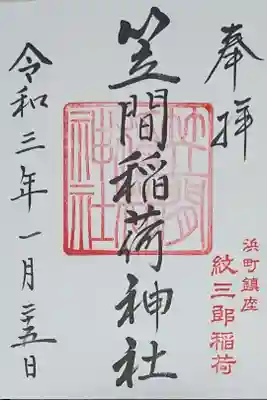 奉拝
浜町鎮座
紋三郎稲荷
笠間稲荷神社
笠間稲荷神社
令和三年一月二十五日